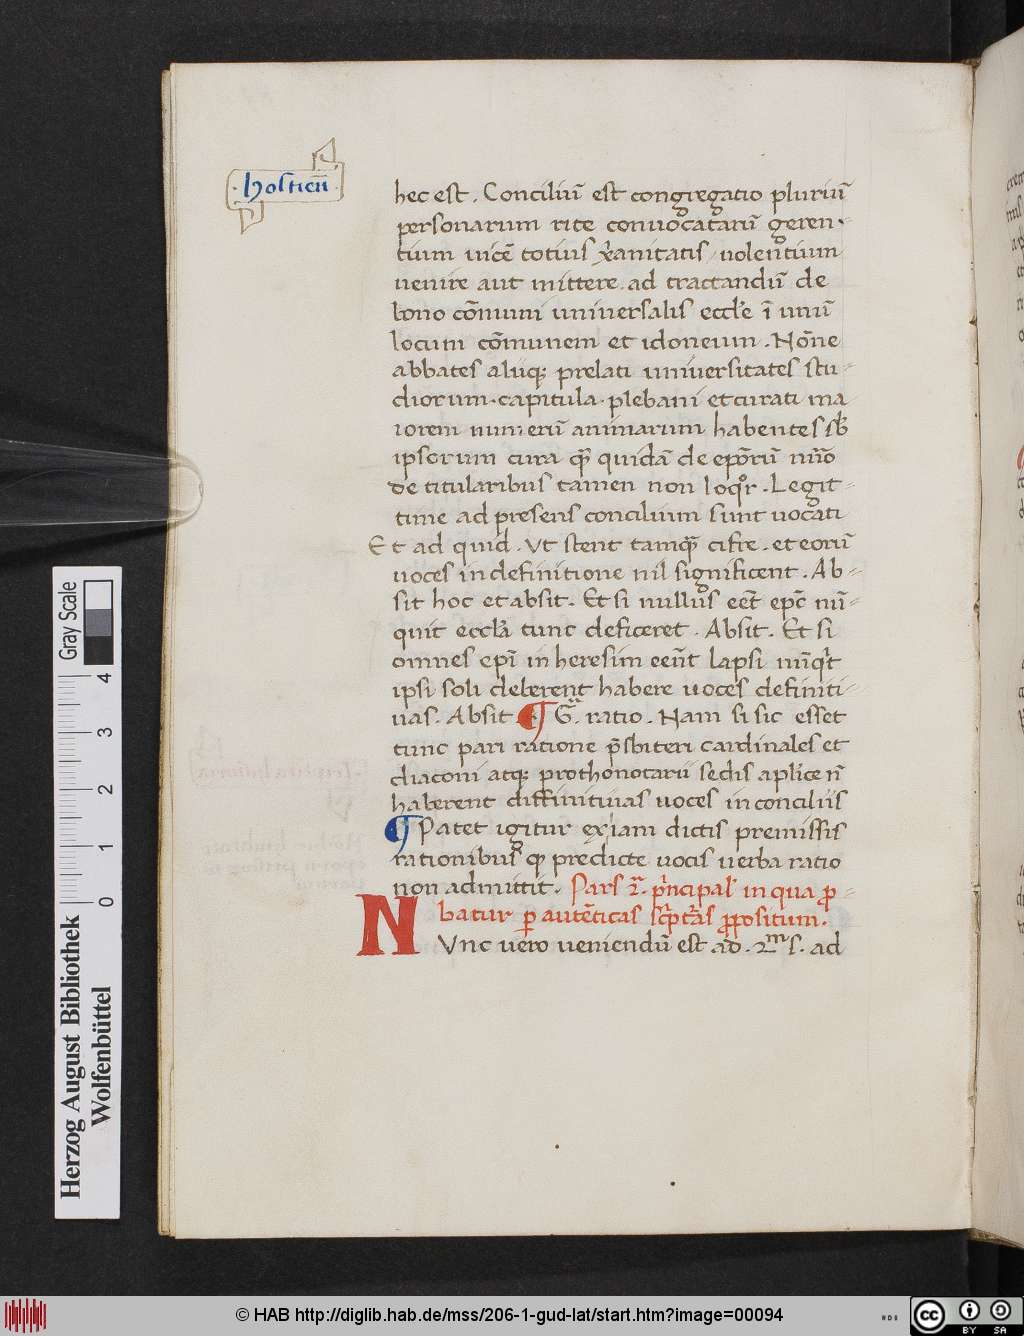 hosticū
hec est. Conciliū est congregatio pluriū
personarum rite convocatarū geren-
tium vicē totius xp̄ianitatis volentium
venire aut mittere ad tractandū de
bono cōmuni universalis eccl̄e ī unū
locum cōmunem et idoneum. Nōne
abbates aliiq; prelati universitates stu-
diorum. capitula. plebani et curati ma
iorem numerū animarum habentes sb̄
ipsorum cura qȝ̄ quidā de epōrū nūo
de titularibus tamen non loqr. Legit-
time ad presens concilium sunt vocati
Et ad quid. Ut stent tamqȝ̄ cifre. et eorū
voces in definitione nil significent. Ab-
sit hoc et absit. Et si nullus eēt epc̄ nū-
quit eccl̄a tunc deficeret. Absit. Et si
omnes epī in heresim eēnt lapsi nūqt
ipsi soli deberent habere voces definiti-
vas. Absit. ¶ G.ª ratio. Nam si sic esset
tunc pari ratione p̄sbiteri cardinales et
diaconi atq; prothonotarii sedis aplice n̄
haberent diffinitivas voces in conciliis
¶ Patet igitur ex iam dictis premissis
rationibus qȝ predicte vocis verba ratio
non admittit. Pars 2.ª prīncipal' in qua p̄-
batur p̱ autēticas scpt̄as p̄positum.
NUnc vero veniendū est ad .2.m s. ad
Gray Scale
0 1 2 3 4
Herzog August Bibliothek
Wolfenbüttel
© HAB http://diglib.hab.de/mss/206-1-gud-lat/start.htm?image=00094
cc BY SA